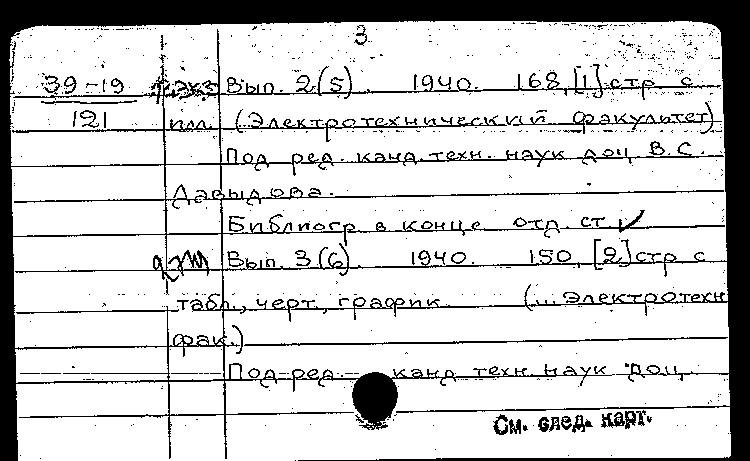 3
39-19 Вып. 2(5). 1940. 168,[1] стр. с
121 илл. (Электротехнический факультет)
Под ред. канд. техн. наук доц. В.С.
Давыдова.
Библиогр. в конце отд. ст.
Вып. 3(6). 1940. 150, [2] стр с
табл., черт., график. (... Электротехн
фак.)
Под ред. канд техн. наук доц.
См. след. карт.